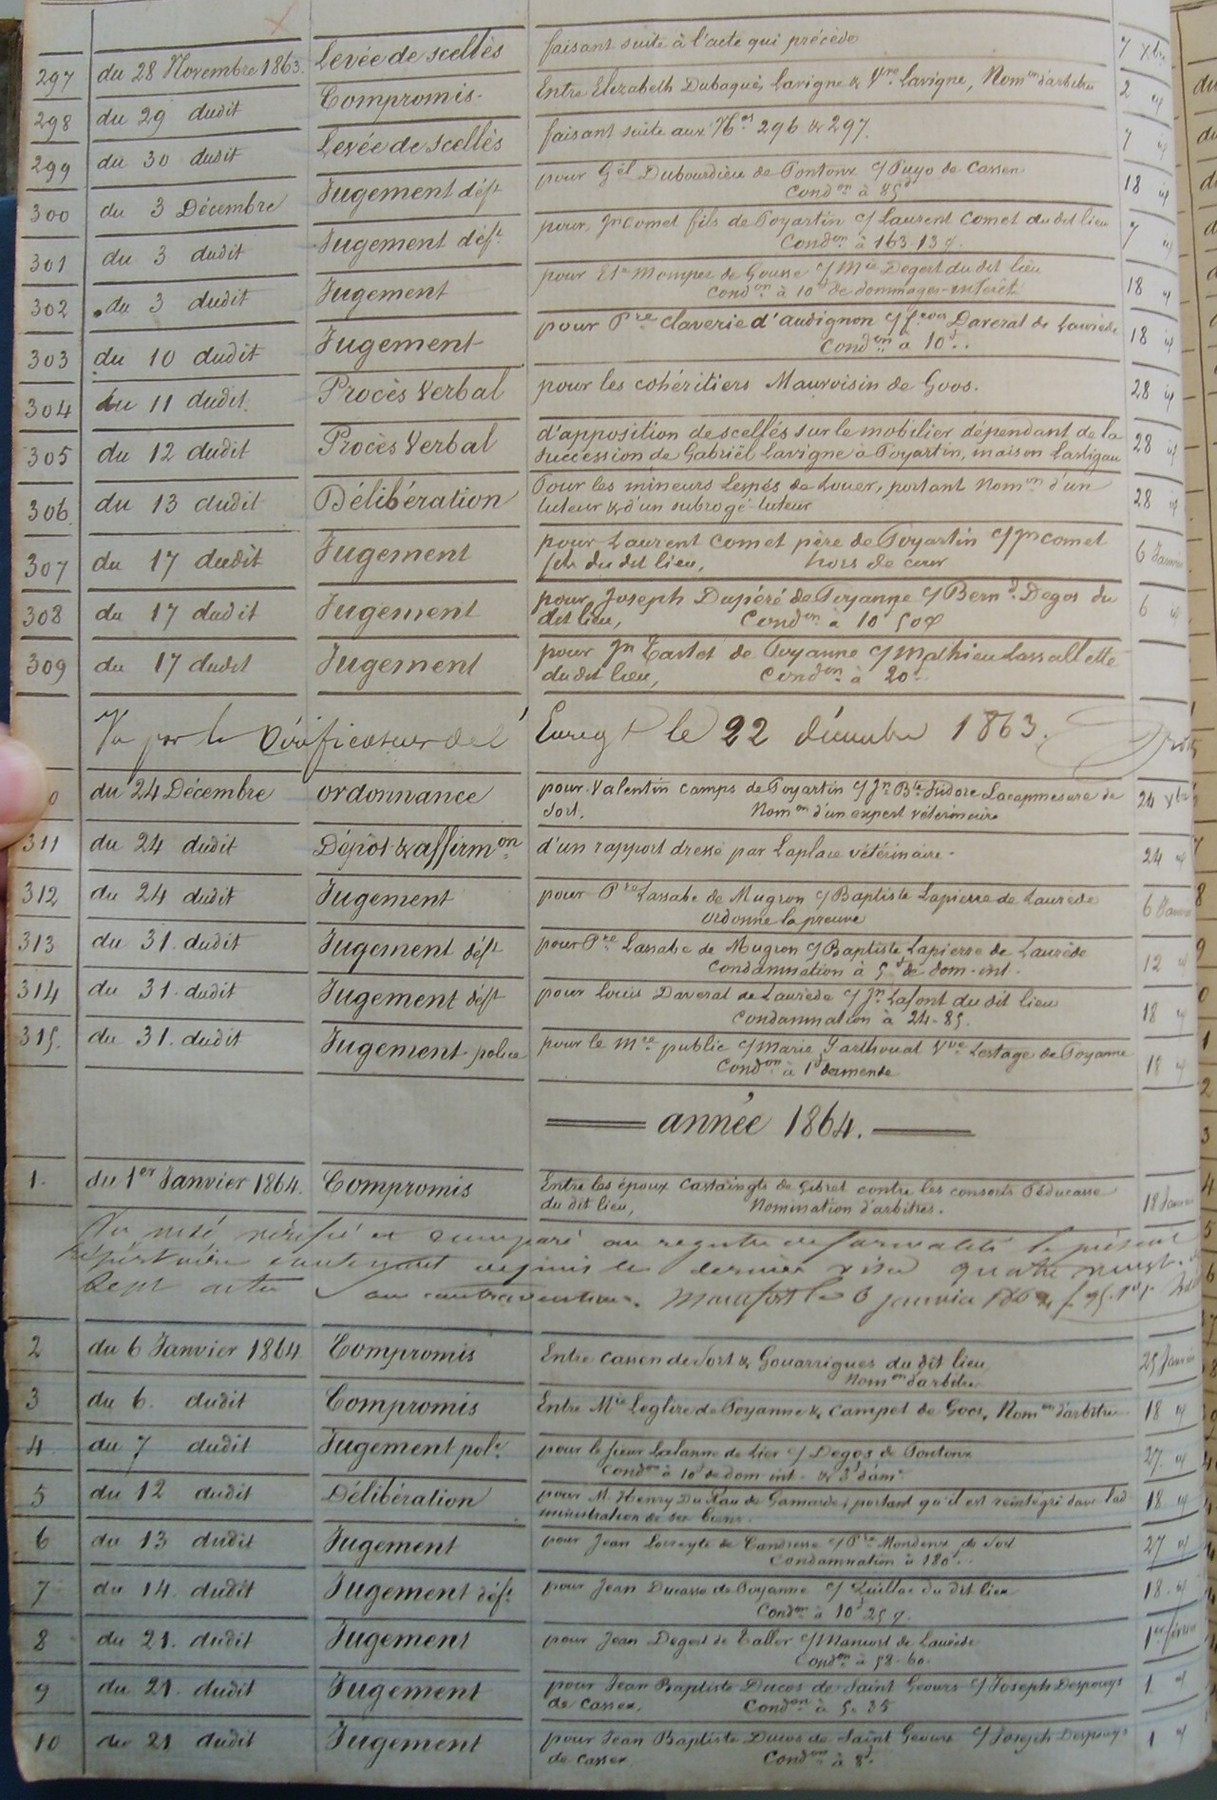 297 du 28 Novembre 1863. Levée de scellés faisant suite à l'acte qui précède 7 Xbre
298 du 29 dudit Compromis. Entre Elizabeth Dubaquié Lavigne & Vve Lavigne, Nomon d'arbitre 2 id
299 du 30 dudit Levée de scellés faisant suite aux Nos 296 & 297. 7 id
300 du 3 Décembre Jugement déft pour Gel Dubourdieu de Pontonx c/ Puyo de Cassen
Condon à 85f 18 id
301 du 3 dudit Jugement déft pour Jn Comet fils de Poyartin c/ Laurent Comet du dit lieu
Condon à 163.13 c. 7 id
302 du 3 dudit Jugement pour Ete Mompez de Gousse c/ Mie Degert du dit lieu
Condon à 10f de dommages-intérêt 18 id
303 du 10 dudit Jugement pour Pre Claverie d'Audignon c/ Daverat de Laurède
Condon à 10f. 18 id
304 du 11 dudit. Procès Verbal pour les cohéritiers Mauvoisin de Goos. 28 id
305 du 12 dudit Procès Verbal d'apposition de scellés sur le mobilier dépendant de la
succession de Gabriel Lavigne à Poyartin, maison Lartigau 28 id
306 du 13 dudit Délibération Pour les mineurs Lespés de Louer, portant Nomon d'un
tuteur & d'un subrogé-tuteur 28 id
307 du 17 dudit Jugement pour Laurent Comet père de Poyartin c/ Jn Comet
fils du dit lieu, hors de cour 6 Janvier
308 du 17 dudit Jugement pour Joseph Dupéré de Poyanne c/ Bernd Degos du
dit lieu, Condon à 10 50 c 6 id
309 du 17 dudit Jugement pour Jn Tastet de Poyanne c/ Mathieu Lassallette
du dit lieu, Condon à 20f
Vu par le Vérificateur de l'Enregt le 22 décembre 1863.
0 du 24 Décembre ordonnance pour Valentin Camps de Poyartin c/ Jn Bte Isidore Lacapmesure de
Sort. Nomon d'un expert vétérinaire 24 Xbre
311 du 24 dudit Dépôt & affirmon d'un rapport dressé par Laplace vétérinaire. 24 id
312 du 24 dudit Jugement pour Pre Lassabe de Mugron c/ Baptiste Lapierre de Laurède
ordonne la preuve 6 Janvier
313 du 31. dudit Jugement déft pour Pre Lassabe de Mugron c/ Baptiste Lapierre de Laurède
Condamnation à 5f de dom-int. 12 id
314 du 31. dudit Jugement déft pour Louis Daverat de Laurède c/ Jn Lafont du dit lieu
Condamnation à 24.85. 18 id
315. du 31. dudit Jugement police pour le Mre public c/ Marie Sarthouat Vve Lestage de Poyanne
Condon à 1f d'amende 18 id
année 1864.
1. du 1er Janvier 1864. Compromis Entre les époux Castaingts de Gibret contre les consorts Péducasse
du dit lieu, Nomination d'arbitres. 18 Janvier
Vu visé vérifié et comparé au registre de formalités le présent
répertoire contenant depuis le dernier visa quatre vingt
sept actes sans contravention. Montfort le 6 janvier 1864
2 du 6 Janvier 1864 Compromis Entre Cassen de Sort & Gouarrigues du dit lieu
Nomon d'arbitre 25 Janvier
3 du 6. dudit Compromis Entre Mie Leglize de Poyanne & Campet de Goos, Nomon d'arbitre 18 id
4 du 7 dudit Jugement pole pour le sieur Lalanne de Lier c/ Degos de Pontonx
Condon à 10f de dom-int. & 3f d'am. 27. id
5 du 12 dudit Délibération pour M. Henry Du Pau de Gamarde, portant qu'il est réintégré dans l'ad
ministration de ses biens. 18. id
6 du 13 dudit Jugement pour Jean Loreyte de Candresse c/ Pre Mondenx de Sort
Condamnation à 180f. 27 id
7 du 14. dudit Jugement déft pour Jean Ducasse de Poyanne c/ Quillac du dit lieu
Condon à 10f 25 c. 18. id
8 du 21. dudit Jugement pour Jean Degest de Taller c/ Mancort de Laurède
Condon à 58-60. 1er février
9 du 21. dudit Jugement pour Jean Baptiste Ducos de Saint Geours c/ Joseph Despouys
de Cassen. Condon à 5.35 1. id
10 du 21 dudit Jugement pour Jean Baptiste Ducos de Saint Geours c/ Joseph Despouys
de Cassen. Condon à 8f. 1 id